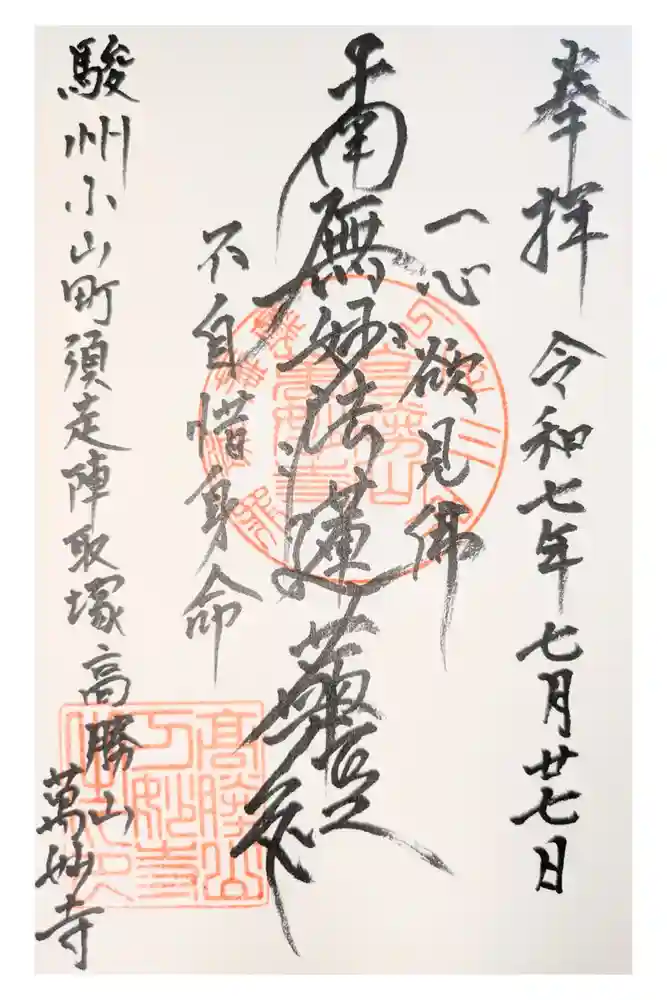 奉拝 令和七年七月廿七日
一心欲見佛
南無妙法蓮華經
不自惜身命
駿州小山町須走陣取塚高勝山
萬妙寺